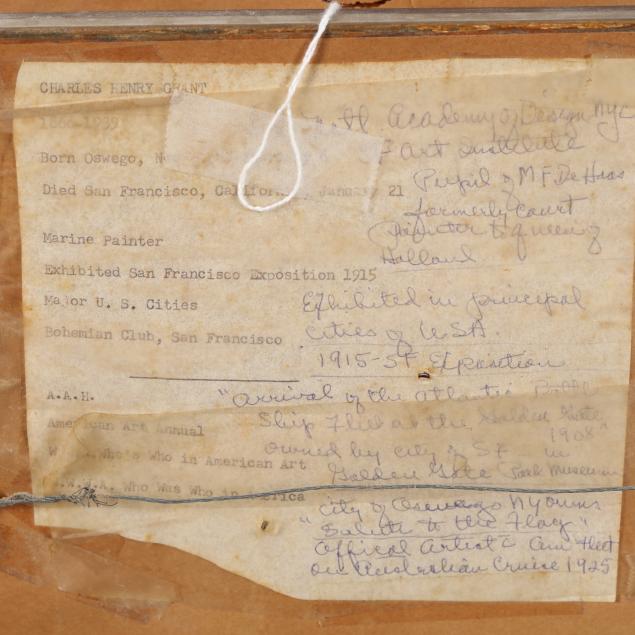 CHARLES HENRY GRANT
1866-1939
Academy of Design NYC
Born Oswego, N
Art Institute
Died San Francisco, California, January 21
Pupil of M F De Haas
formerly court
painter to queen of
Holland
Marine Painter
Exhibited San Francisco Exposition 1915
Major U. S. Cities
Exhibited in principal
Bohemian Club, San Francisco
cities of USA.
1915-SF Exposition
A.A.H.
"Arrival of the Atlantic
American Art Annual
Ship Fleet at the Golden Gate
1908"
owned by city of SF in
W Who's Who in American Art
Golden Gate Park Museum
W.W.A. Who Was Who in America
City of Oswego NY owns
"Salute to the Flag"
Offical Artist Am Fleet
on Australian Cruise 1925